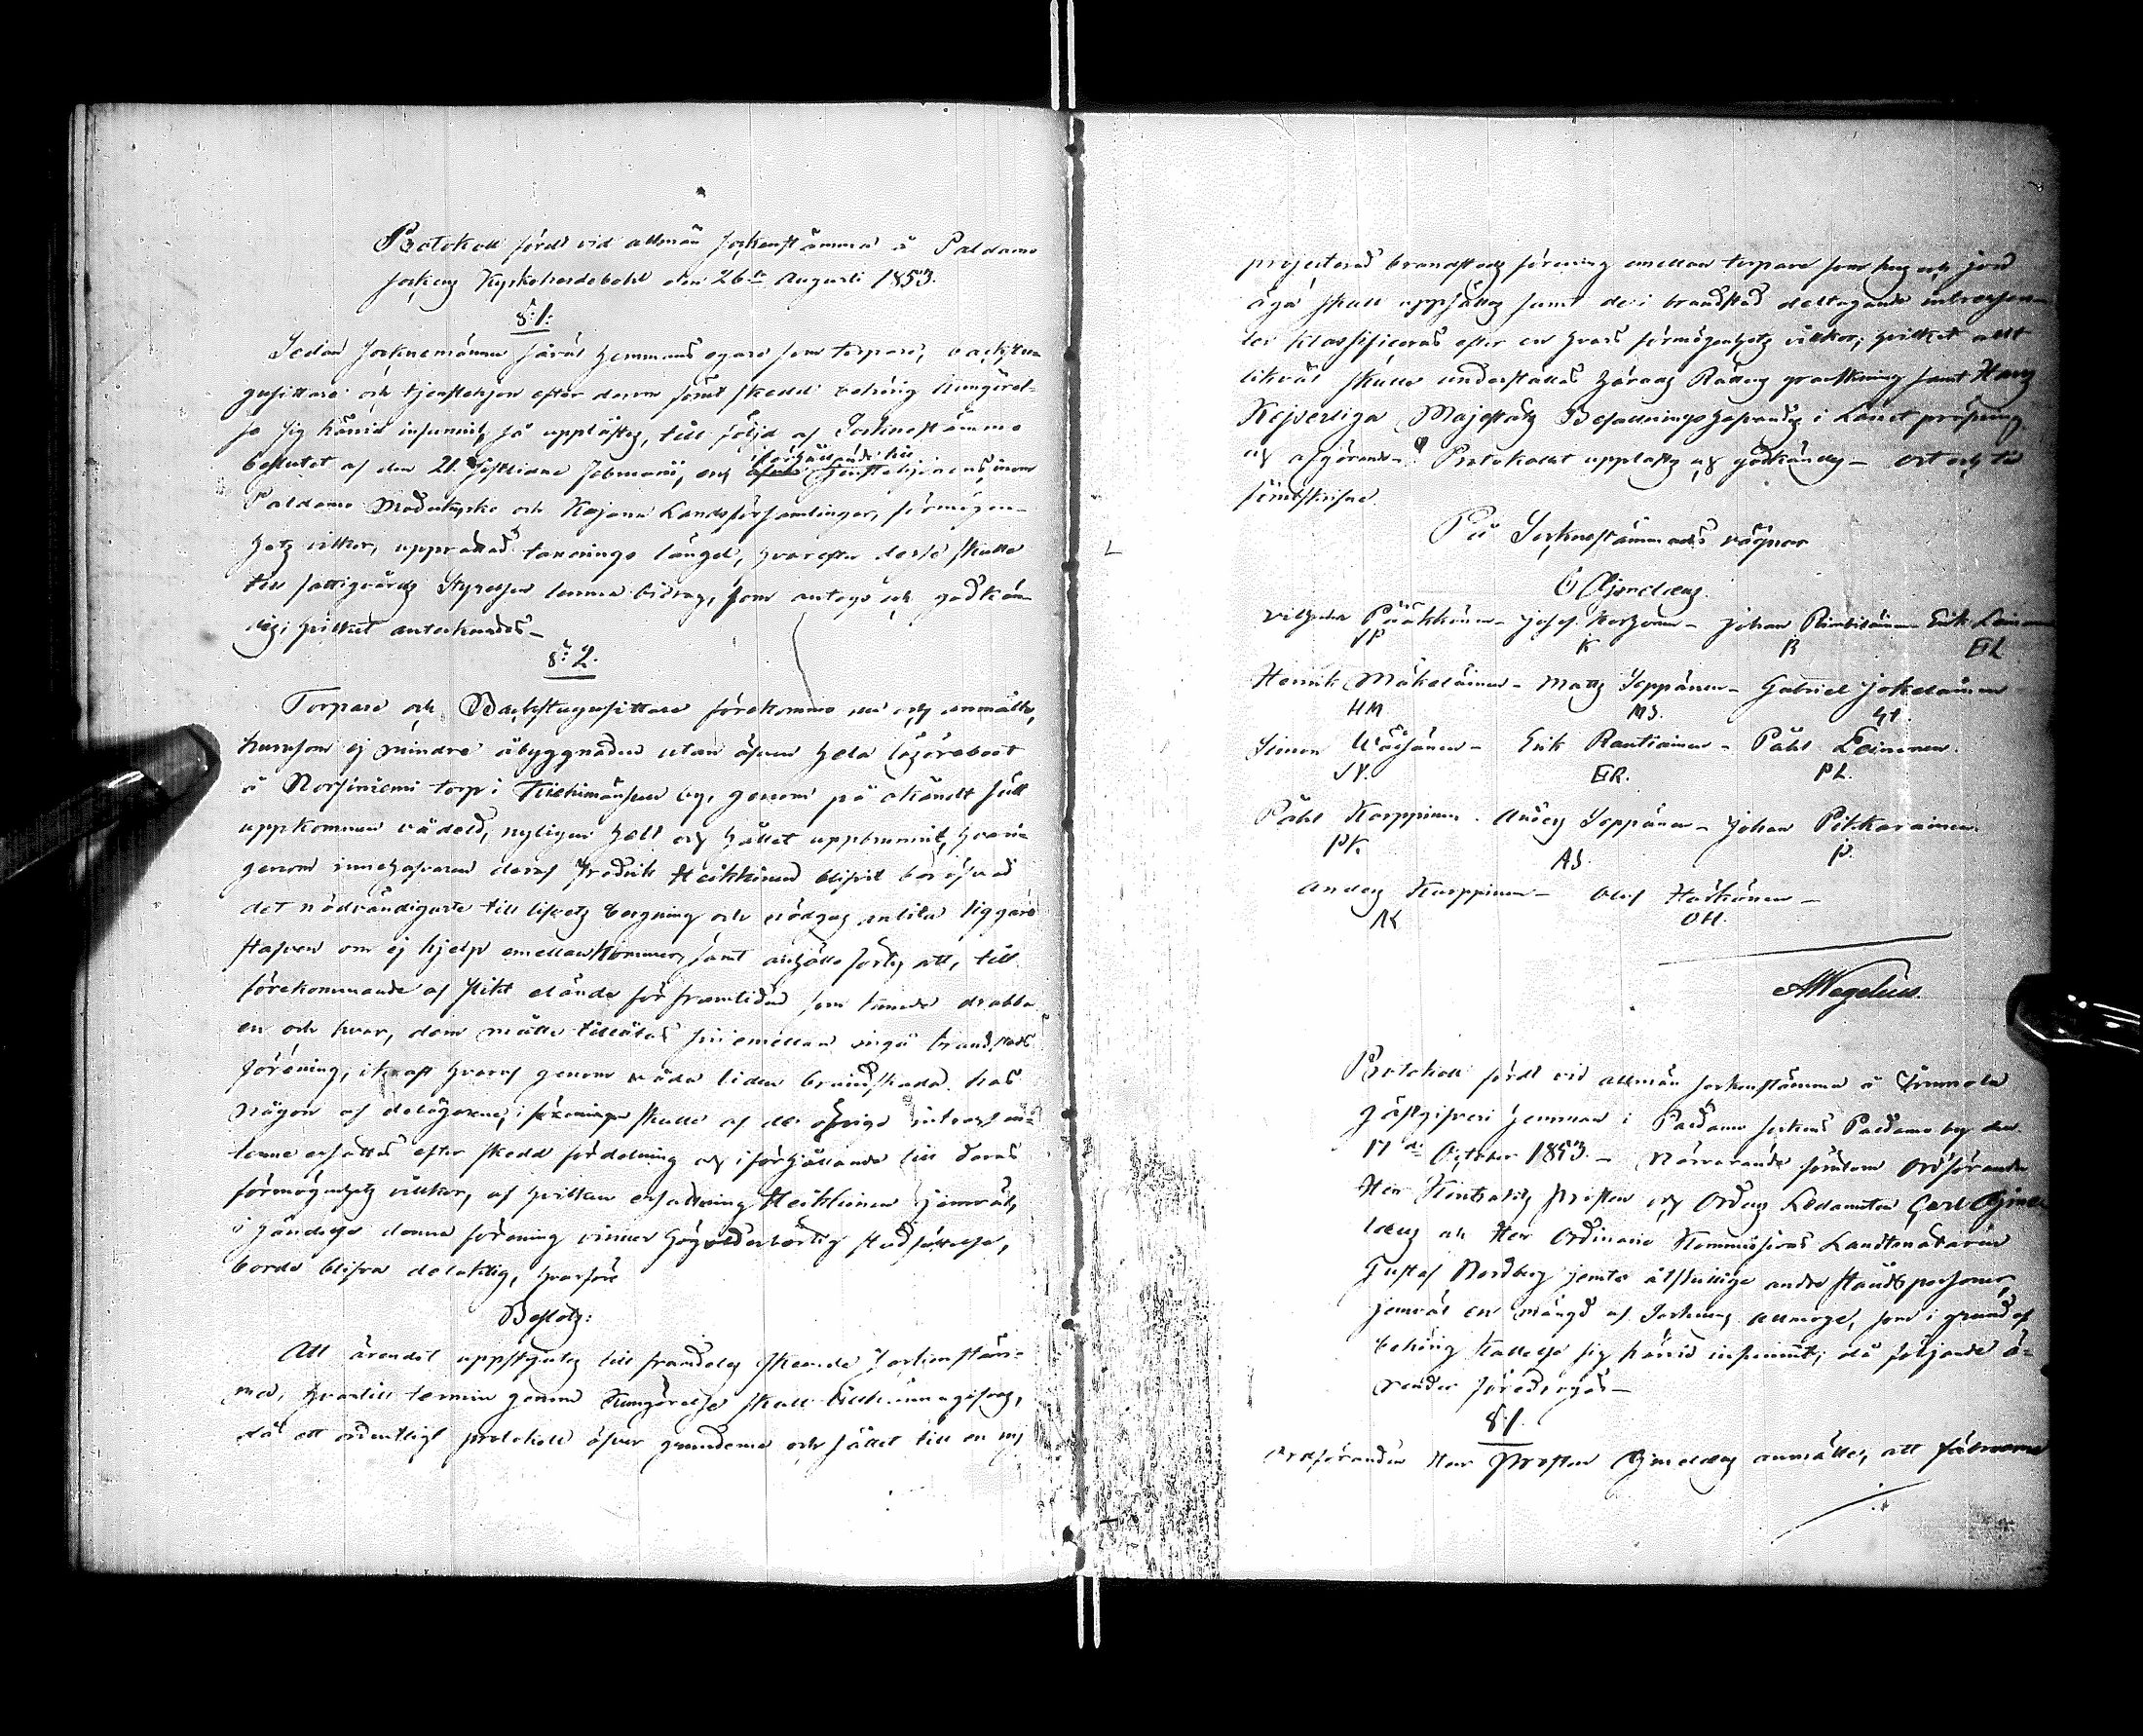 Protokoll fördt vid allmän Sockenstämma å Paldamo
Sockens Kyrkoherdebohl den 26te Augusti 1853.
§:1:
Sedan Socknemännen såväl hemmans egare som torpare, backstu
gusittare och tjenstehjon efter derom förut skedd behörig kungörel-
se sig härvid infunnit, så upplästes, till följd af Socknestämmo
beslutet af den 21. sistledne Februarii, och
i förhållande till
tjenstehjonens, inom
Paldamo Moderkyrko och Kajana Landsförsamlingar, förmögen-
hets vilkor, upprättad taxerings längd, hvarefter desse skulle
till fattigvårds Styrelsen lemna bidrag, som antogs och godkän-
des; hvilket antecknades –
§: 2.
Torpare och Backstugusittare förekommo nu och anmälte,
hurusom ej mindre åbyggnaden utan äfven hela lösöreboet
å Norsiniemi torp i Kiehimänsuu by, genom på okändt sätt
uppkommen vådeld, nyligen helt och hållet uppbrunnit, hvari-
genom innehafvaren deraf Fredrik Heikkinen blifvit beröfvad
det nödvändigaste till lifvets bergning och nödgas anlita tiggare
stafven om ej hjelp emellankommer, samt anhöllo förty att, till
förekommande af slikt elände för framtiden som kunde drabba
en och hvar, dem måtte tillåtas sinsemellan ingå brandstods
förening, i kraft hvaraf genom våda liden brandskada hos
någon af delägarene i föreningen skulle af de öfrige intressen-
terne ersättas efter skedd fördelning och i förhållande till deras
förmögenhets vilkor, af hvilken ersättning Heikkinen jemväl,
i händelse denna förening vinner höga vederbörliga stadfästelse,
borde blifva delaktig, hvarföre
Beslöts:
Att ärendet uppskjutes till framdeles skeende Sockenstäm-
ma, hvartill termin genom kungörelse skall tillkännagifvas,
då ett ordentligt protokoll öfver grunderne och sättet till en ny
projecterad brandstods förening emellan torpare som hus och jord
äga skall uppsättas samt de i brandstod deltagande intressen-
ter klassificeras efter en hvars förmögenhets vilkor, hvilket allt
likväl skulle underställas Härads Rättens granskning samt Hans
Kejserliga Majestäts Befallningshafvandes i Länet pröfning
och afgörande – Protokollet upplästes och godkändes – ort och tid
som förut skrifne.
På Socknestämmans vägnar
C Ajmelaeus.
Vilhelm Pääkkönen – Josef Korhonen – Johan Rimbiläinen Erik Leinonen
VP K R EL
Henrik Mäkeläinen – Matts Seppänen – Gabriel Jokelainen
HM MS. GI.
Simon Väisänen – Erik Rautiainen – Påhl Leinonen.
SV. ER. PL.
Påhl Karppinen. Anders Seppänen – Johan Pitkärainen.
PK AS. P.
Anders Karppinen – Olof Härkönen –
AK OH.
AWegelius.
Protokoll fördt vid allmän Sockenstämma å
Gästgifveri hemman i Paldamo Sockens Paldamo by den
17de October 1853. – Närvarande förutom Ordföranden
Herr Kontrakts Prosten och Ordens Ledamoten Carl Ajme-
laeus och Herr Ordinarie Kommissions Landtmätaren
Gustaf Nordberg jemte åtskillige andre ståndspersoner,
jemväl en mängd af Sockens allmoge, som i grund af
behörig kallelse sig härvid infunnit, då följande ä-
render föredrogos –
§ 1.
Ordföranden Herr Prosten Ajmelaeus anmälte, att